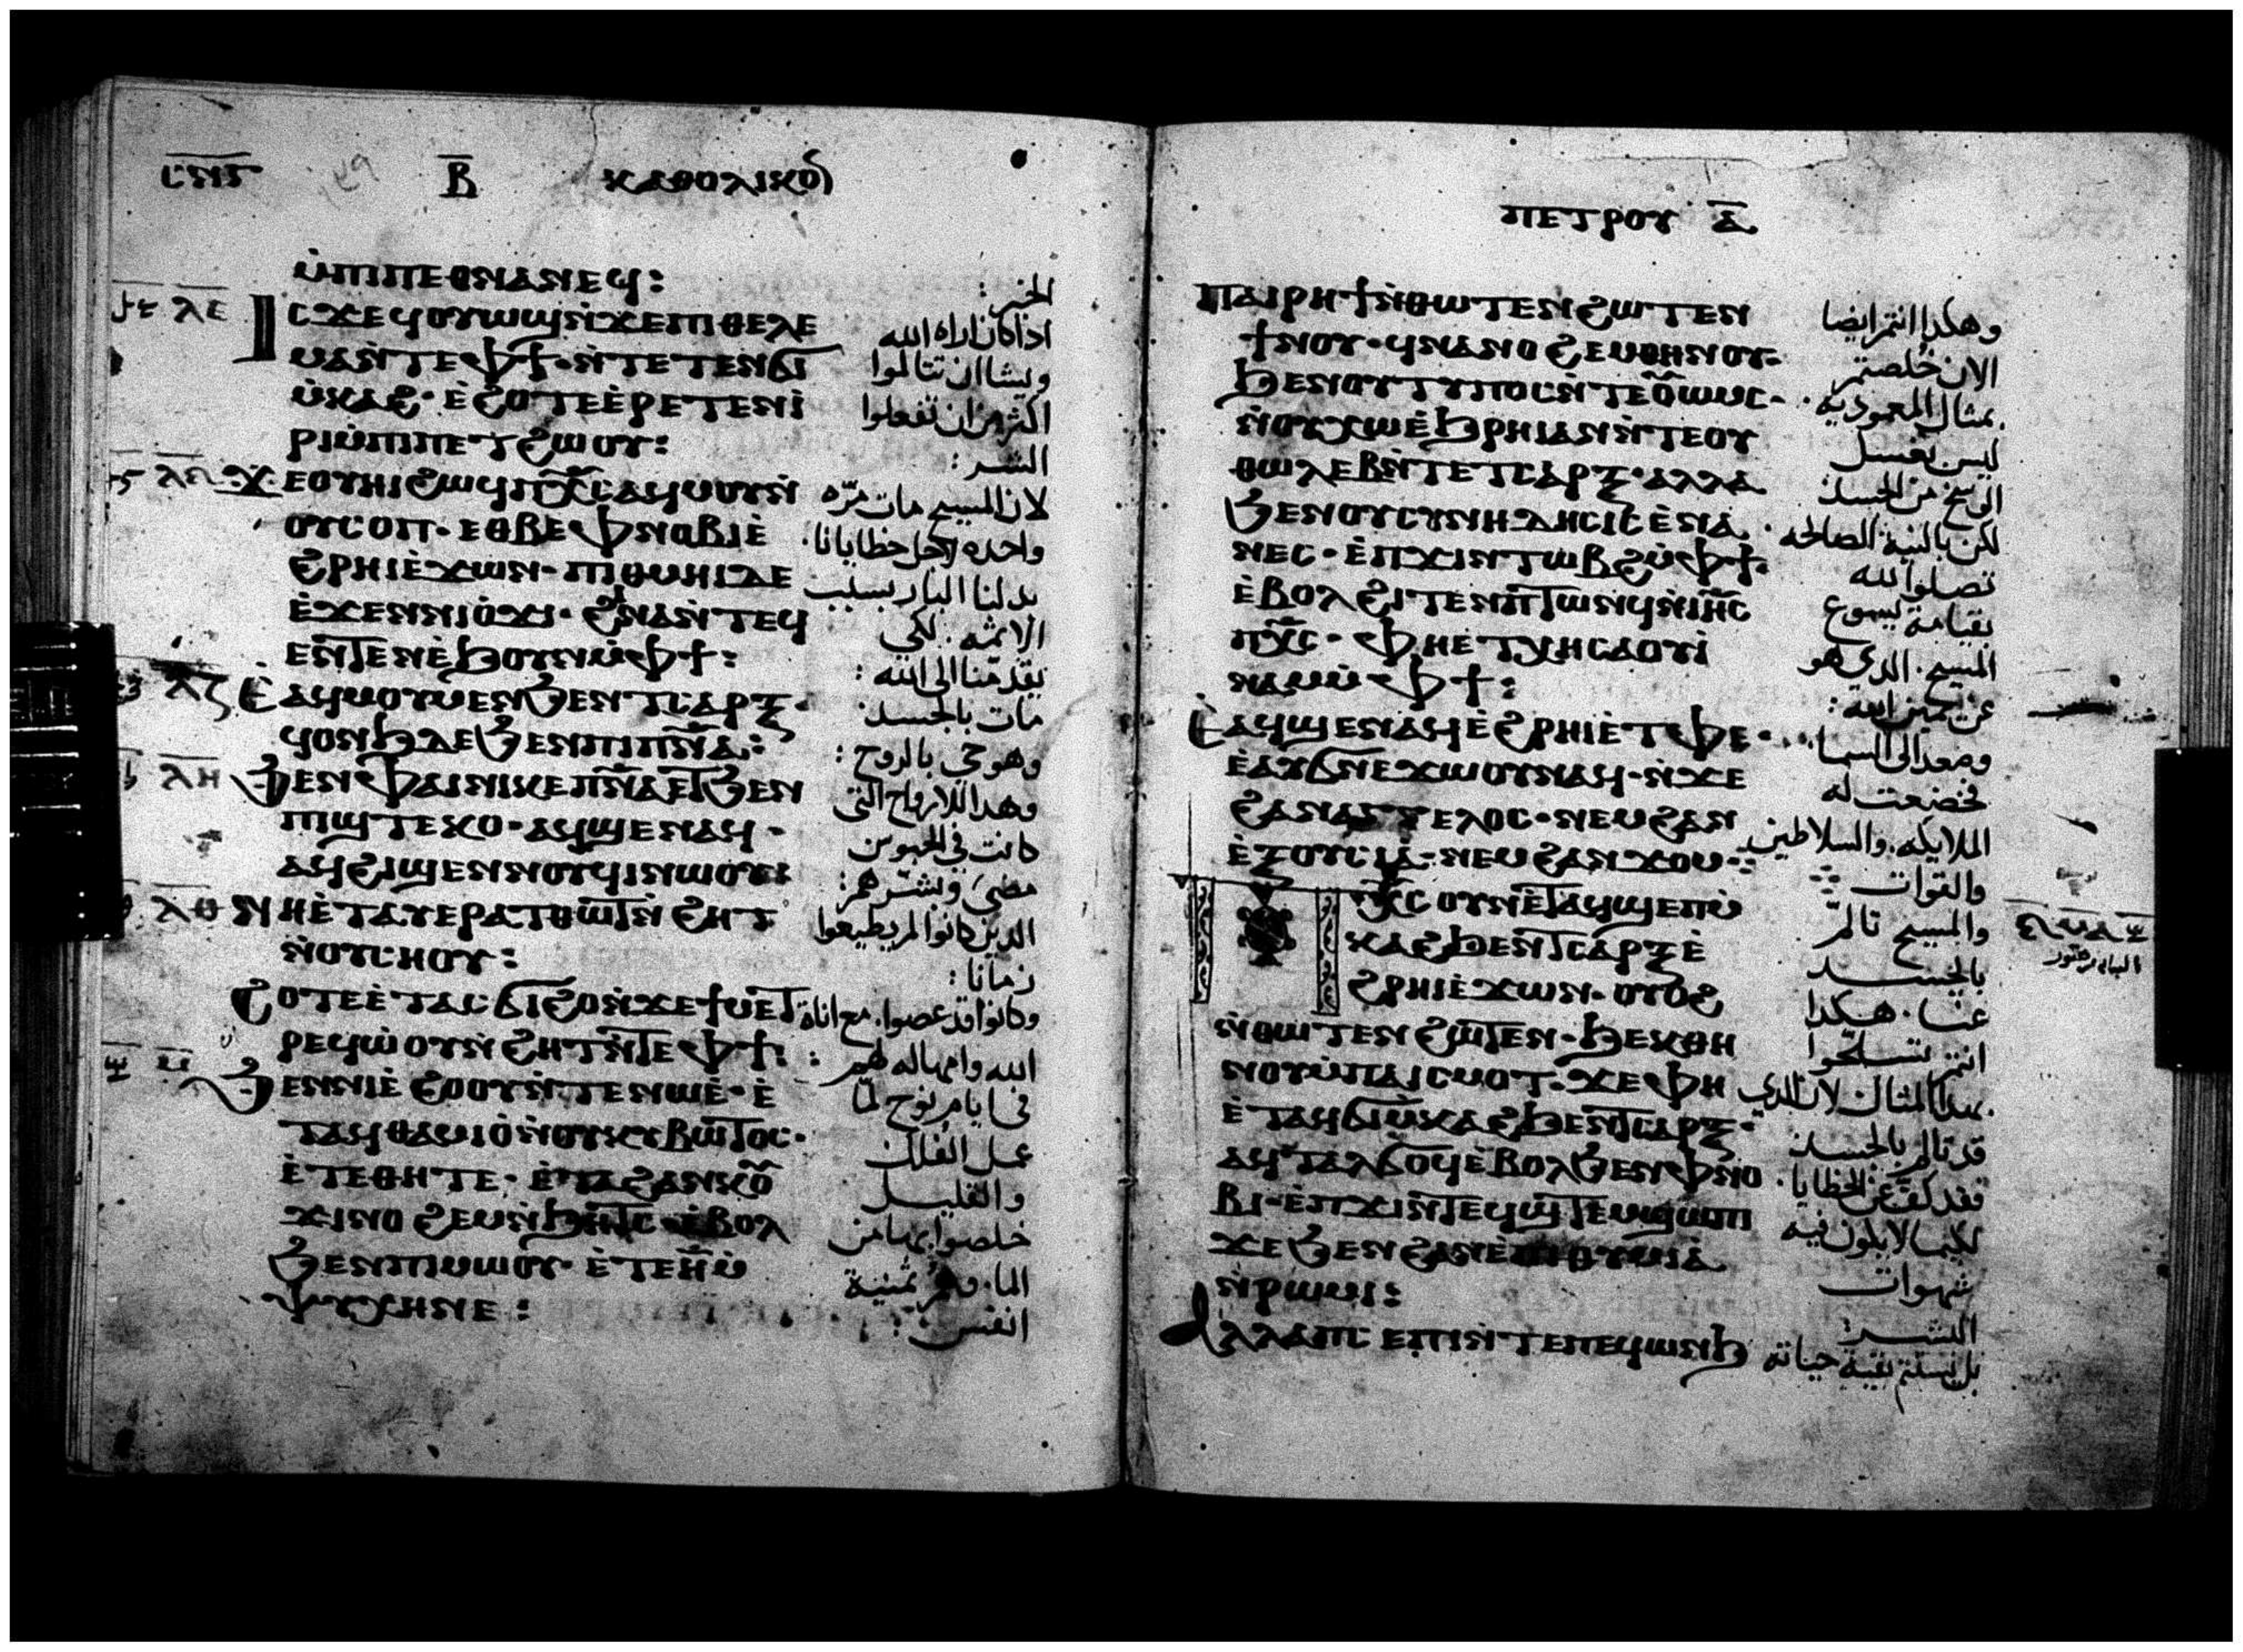 ⲥⲛⲋ Ⲃ ⲕⲁⲑⲟⲗⲓⲕⲟⲛ
ⲙ̀ⲡⲓⲡⲉⲑⲛⲁⲛⲉϥ:
ⲗⲉ ⲓⲥϫⲉϥⲟⲩⲱϣⲛ̀ϫⲉⲡⲓⲑⲉⲗⲏ
ⲙⲁⲛ̀ⲧⲉⲫϯ· ⲛ̀ⲧⲉⲧⲉⲛϭⲓ
ⲙ̀ⲕⲁϩ· ⲉ̀ϩⲟⲧⲉⲉ̀ⲣⲉⲧⲉⲛⲓ̀
ⲣⲓⲙ̀ⲡⲓⲡⲉⲧϩⲱⲟⲩ:
ϫⲉⲟⲩⲏⲓϩⲱϥⲡⲭ̅ⲥ̅ⲁϥⲙⲟⲩⲛ̀
ⲟⲩⲥⲟⲡ· ⲉⲑⲃⲉⲫⲛⲟⲃⲓⲉ̀
ϩⲣⲏⲓⲉ̀ϫⲱⲛ· ⲡⲓⲑⲙⲏⲓⲇⲉ
ⲉ̀ϫⲉⲛⲛⲓⲟ̀ϫⲓ· ϩⲓⲛⲁⲛ̀ⲧⲉϥ
ⲉⲛⲧⲉⲛⲉ̀ϧⲟⲩⲛⲙ̀ⲫϯ:
ⲗⲍ ⲉ̀ⲁϥⲙⲟⲩⲙⲉⲛϧⲉⲛⲧⲥⲁⲣⲝ·
ϥⲟⲛϧⲇⲉϧⲉⲛⲡⲓⲡⲛ̅ⲁ̅:
ⲗⲏ ϧⲉⲛⲫⲁⲓⲛⲓⲕⲉⲡⲛ̅ⲁ̅ⲉⲧϧⲉⲛ
ⲡⲓϣⲧⲉⲕⲟ· ⲁϥϣⲉⲛⲁϥ·
ⲁϥϩⲓϣⲉⲛⲛⲟⲩϥⲓⲛⲱⲟⲩ:
ⲗⲑ ⲛⲏⲉ̀ⲧⲁⲩⲉⲣⲁⲧⲑⲱⲧⲛ̀ϩⲏⲧ
ⲛ̀ⲟⲩⲥⲏⲟⲩ:
ϩⲟⲧⲉⲉ̀ⲧⲁⲥϭⲓϩⲟⲛ̀ϫⲉϯⲙⲉⲧ
ⲣⲉϥⲱ̀ⲟⲩⲛ̀ϩⲏⲧⲛ̀ⲧⲉⲫϯ:
ⲙ ϧⲉⲛⲛⲓⲉ̀ϩⲟⲟⲩⲛ̀ⲧⲉⲛⲱⲉ̀· ⲉ̀
ⲧⲁϥⲑⲁⲙⲓⲟ̀ⲛ̀ⲟⲩⲕⲩⲃⲱⲧⲟⲥ·
ⲉ̀ⲧⲉⲑⲏⲧⲉ· ⲉ̀ⲧⲁϩⲁⲛⲕⲟⲩ
ϫⲓⲛⲟϩⲉⲙⲛ̀ϧⲏⲧⲥ· ⲉ̀ⲃⲟⲗ
ϧⲉⲛⲡⲓⲙⲱⲟⲩ· ⲉ̀ⲧⲉⲏ̅ⲙ̀
ⲯⲩⲭⲏⲛⲉ:
الخير:
اذا كان اراه الله
ويشا ان تتالموا
اكثر من ان تفعلوا
الشر:
لان المسيح مات مره
واحده لاجل خطايانا.
بدلنا البار بسبب
الاثمه. لكي
يقدمنا الى الله:
مات بالجسد
وهو حي بالروح:
وهذا للارواح التي
كانت في الحبوس
مضى وبشرهم:
الذين كانوا لم يطيعوا
زمانا:
وكانوا قد عصوا. مع اناة
الله وامهاله لهم:
في ايام نوح لما
عمل الفلك
والقليل
خلصوا بها من
الما. وهم ثمنية
انفس:
ⲡⲉⲧⲣⲟⲩ ⲁ̅
ⲡⲁⲓⲣⲏϯⲛ̀ⲑⲱⲧⲉⲛϩⲱⲧⲉⲛ
ϯⲛⲟⲩ· ϥⲛⲁⲛⲟϩⲉⲙⲑⲏⲛⲟⲩ·
ϧⲉⲛⲟⲩⲧⲩⲡⲟⲥⲛ̀ⲧⲉⲟ̅ⲱⲙⲥ·
ⲛ̀ⲟⲩⲭⲱⲉ̀ϧⲣⲏⲓⲁⲛⲛ̀ⲧⲉⲟⲩ
ⲑⲱⲗⲉⲃⲛ̀ⲧⲉⲧⲥⲁⲣⲝ· ⲁⲗⲗⲁ
ϧⲉⲛⲟⲩⲥⲩⲛⲏⲇⲏⲥⲓⲥⲉ̀ⲛⲁ
ⲛⲉⲥ· ⲉ̀ⲡϫⲓⲛⲧⲱⲃϩⲙ̀ⲫϯ·
ⲉ̀ⲃⲟⲗϩⲓⲧⲉⲛⲡⲧⲱⲛϥⲛ̀ⲓⲏ̅ⲥ̅
ⲡⲭ̅ⲥ̅· ⲫⲏⲉ̀ⲧⲭⲏⲥⲁⲟⲩⲓ̀
ⲛⲁⲙⲙ̀ⲫϯ:
ⲉ̀ⲁϥϣⲉⲛⲁϥⲉ̀ϩⲣⲏⲓⲉ̀ⲧⲫⲉ·
ⲉ̀ⲁⲩϭⲛⲉϫⲱⲟⲩⲛⲁϥ· ⲛ̀ϫⲉ
ϩⲁⲛⲁⲅⲅⲉⲗⲟⲥ· ⲛⲉⲙϩⲁⲛ
ⲉ̀ⲝⲟⲩⲥⲓⲁ̀· ⲛⲉⲙϩⲁⲛϫⲟⲙ·:
ⲡⲭ̅ⲥ̅ⲟⲩⲛⲉ̀ⲧⲁϥϣⲉⲡⲙ̀
ⲕⲁϩϧⲉⲛⲧⲥⲁⲣⲝⲉ̀
ϩⲣⲏⲓⲉ̀ϫⲱⲛ· ⲟⲩⲟϩ
ⲛ̀ⲑⲱⲧⲉⲛϩⲱⲧⲉⲛ· ϧⲉⲕⲑⲏ
ⲛⲟⲩⲙ̀ⲡⲁⲓⲥⲙⲟⲧ· ϫⲉⲫⲏ
ⲉ̀ⲧⲁϥϭⲓⲙ̀ⲕⲁϩϧⲉⲛⲧⲥⲁⲣⲝ·
ⲁϥⲧⲁⲗϭⲟϥⲉ̀ⲃⲟⲗϧⲉⲛⲫⲛⲟ
ⲃⲓ· ⲉ̀ⲡϫⲓⲛⲧⲉϥϣⲧⲉⲙϣⲱⲡⲓ
ϫⲉϧⲉⲛϩⲁⲛⲉ̀ⲡⲓⲑⲩⲙⲓⲁ
ⲛ̀ⲣⲱⲙⲓ:
ⲁⲗⲗⲁⲡⲥⲉⲡⲓⲛ̀ⲧⲉⲡⲉϥⲱⲛϧ
وهكذا انتم ايضا
الان خلصتم
بمثال المعموديه.
ليس بغسل
الوسخ من الجسد
لكن بالنية الصالحه
تصلوا لله
بقيامة يسوع
المسيح. الذي هو
عن يمين الله:
وصعد الى السما
فخضعت له
الملايكه. والسلاطين
والقوات
والمسيح تالم
بالجسد
عنا. هكذا
انتم تسلحوا
بهذا المثال لان الذي
قد تالم بالجسد
فقد كف عن الخطايا.
لكيما لا يكون فيه
شهوات
البشر:
بل يستتم بقية حياته